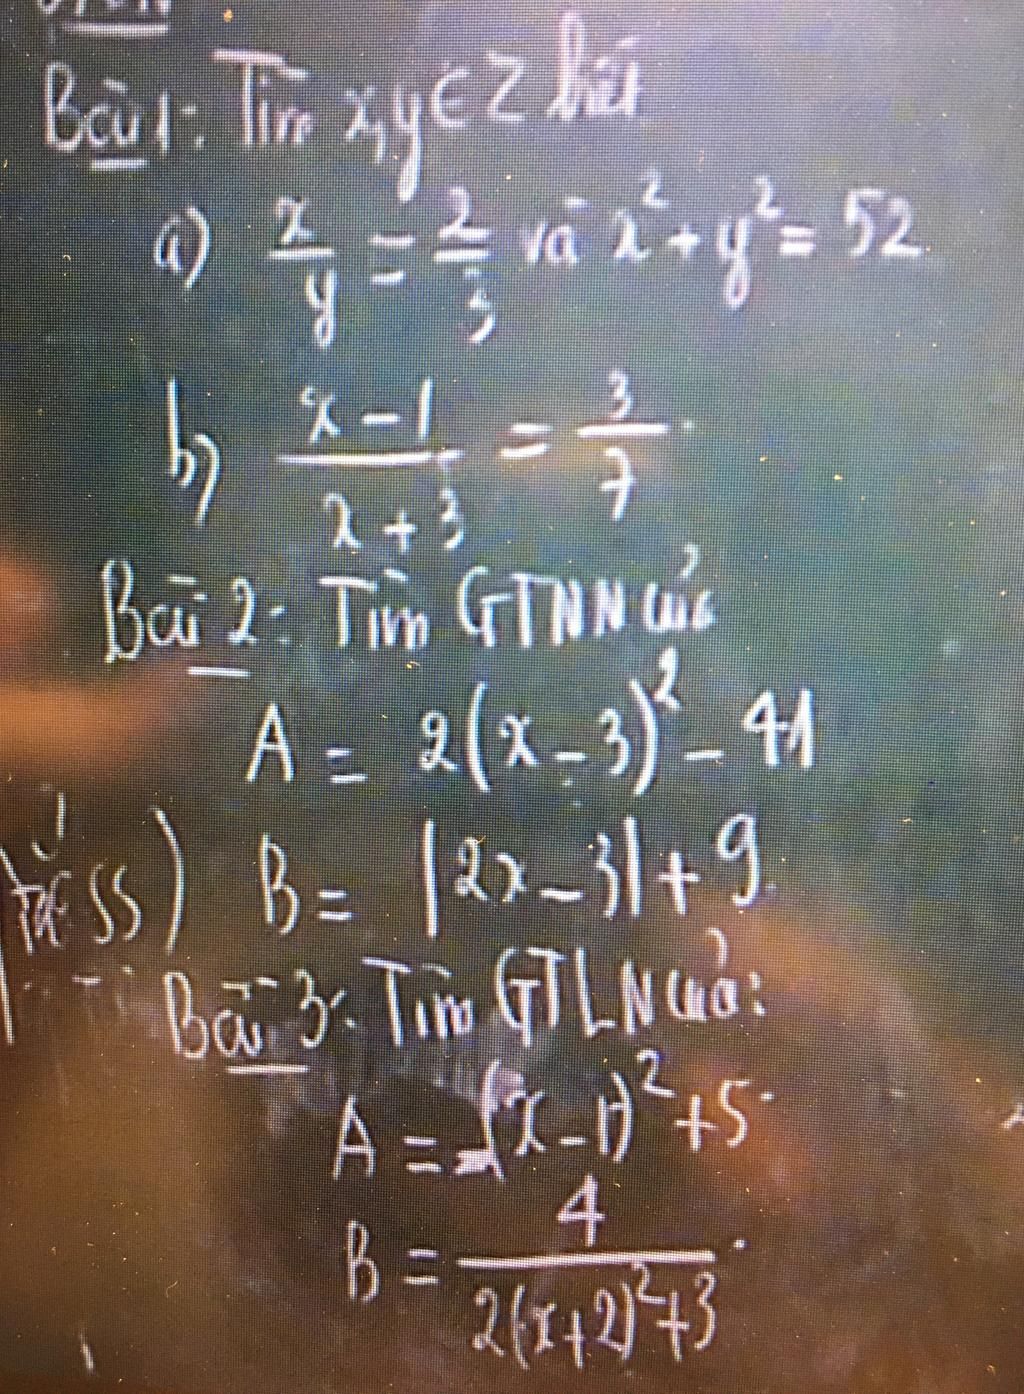 Bài 1: Tìm x,y ∈ Z biết
a) x/y = 2/3 và x² + y² = 52
b) x-1/x+3 = 3/7
Bài 2: Tìm GTNN của
A = 2(x-3)² - 41
SS) B = |2x-3| + 9
Bài 3: Tìm GTLN của:
A = -(x-1)² + 5
B = 4/2(x+2)²+3